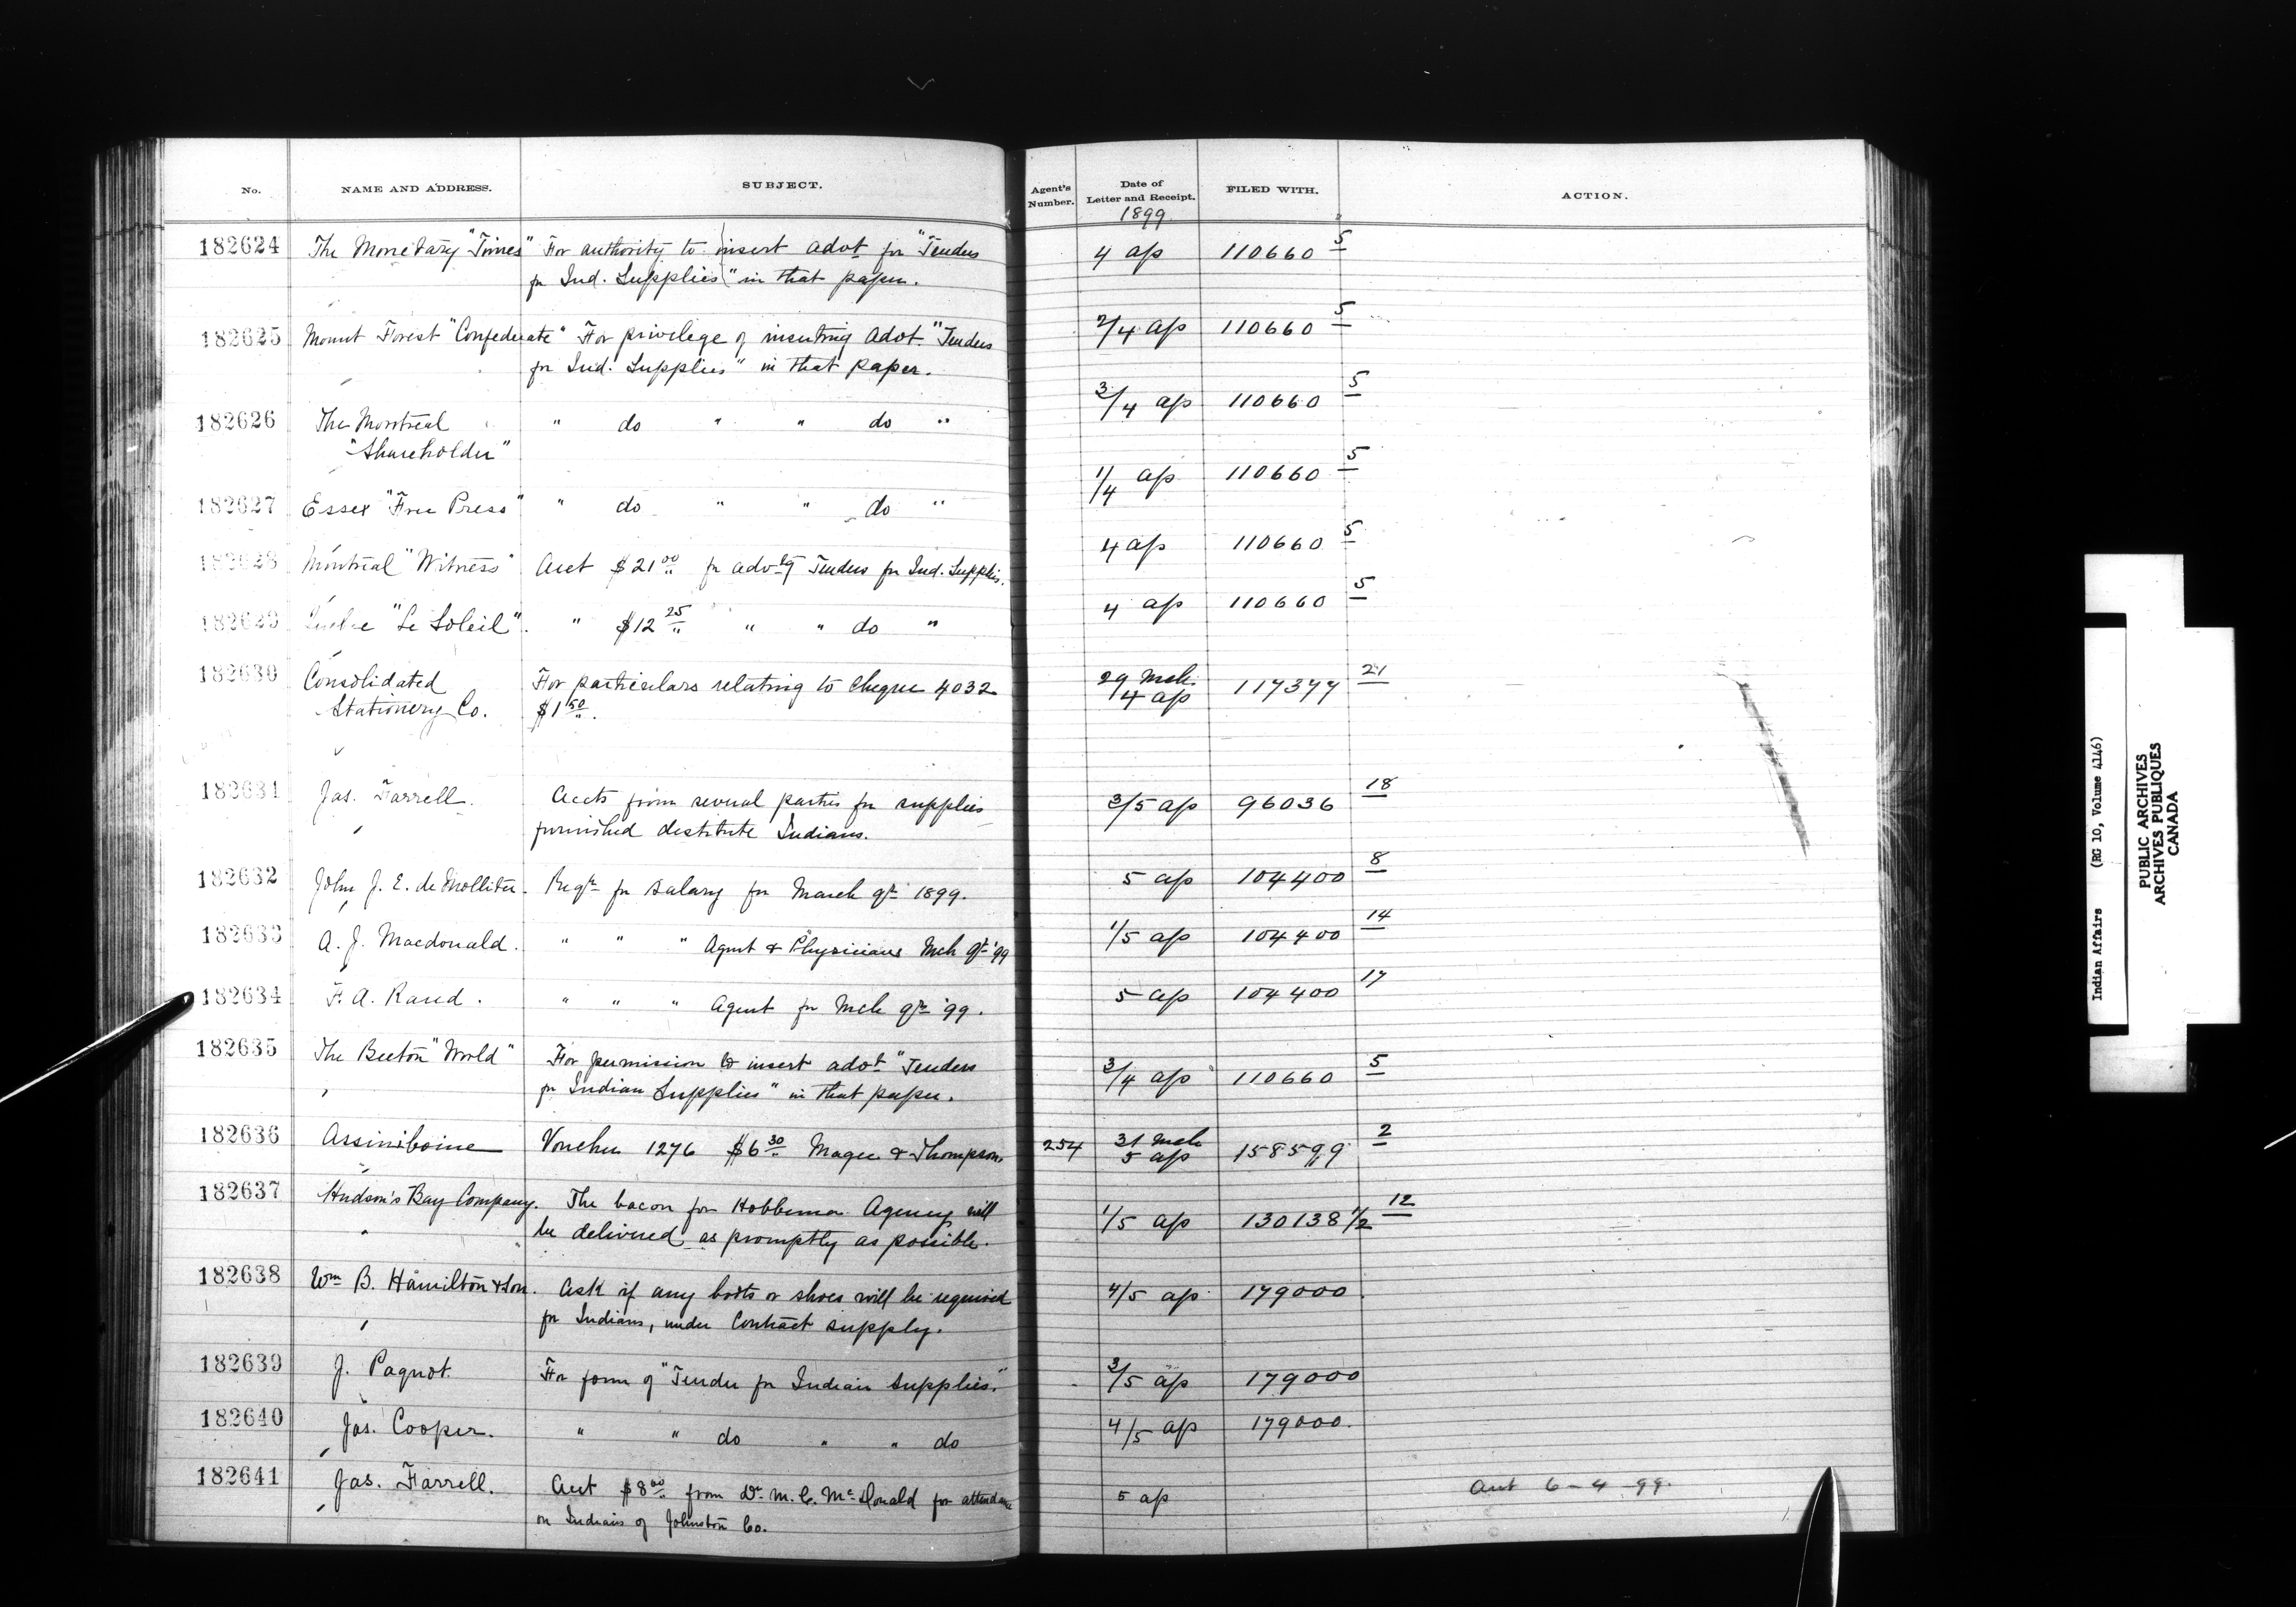 No. NAME AND ADDRESS. SUBJECT. Agent's Number. Date of Letter and Receipt. FILED WITH. ACTION.
1899
182624 The Monetary "Times" For authority to insert advt for "Tenders 4 ap 110660 5
for Ind. Supplies" in that paper.
182625 Mount Forest "Confederate" For privilege of inserting advt. "Tenders 2/4 ap 110660 5
for Ind. Supplies" in that paper.
182626 The Montreal " do " " do " 3/4 ap 110660 5
"Shareholder"
182627 Essex "Free Press" " do " " do " 1/4 ap 110660 5
182628 Montreal "Witness" Acct $21.00 for advtg Tenders for Ind. Supplies. 4 ap 110660 5
182629 "Le Soleil". " $12.25 " " do " 4 ap 110660 5
182630 Consolidated For particulars relating to cheque 4032 29 Mch 117377 21
Stationery Co. $1.50. 4 ap
182631 Jas. Farrell. Accts from several parties for supplies 3/5 ap 96036 18
furnished destitute Indians.
182632 John J. E. de Molliter. Reqn for Salary for March qr 1899. 5 ap 104400 8
182633 A. J. Macdonald. " " " Agent & Physicians Mch qr '99 1/5 ap 104400 14
182634 F. A. Rand. " " " Agent for Mch qr '99. 5 ap 104400 17
182635 The Beeton "World" For permission to insert advt "Tenders 3/4 ap 110660 5
for Indian Supplies" in that paper.
182636 Assiniboine Voucher 1276 $6.30 Magee & Thompson. 254 31 Mch 158599 2
5 ap
182637 Hudson's Bay Company. The bacon for Hobbema Agency will 1/5 ap 130138 1/2 12
be delivered as promptly as possible.
182638 Wm B. Hamilton & Son. Ask if any boots or shoes will be required 4/5 ap 179000
for Indians, under Contract supply.
182639 J. Paquot. For form of "Tender for Indian Supplies." 3/5 ap 179000
182640 Jas. Cooper. " " do " " do 4/5 ap 179000.
182641 Jas. Farrell. Acct $8.00 from Dr. M. C. McDonald for attendance 5 ap Aut 6-4-99.
on Indians of Johnston Co.
Indian Affairs (RG 10, Volume 4146)
PUBLIC ARCHIVES
ARCHIVES PUBLIQUES
CANADA